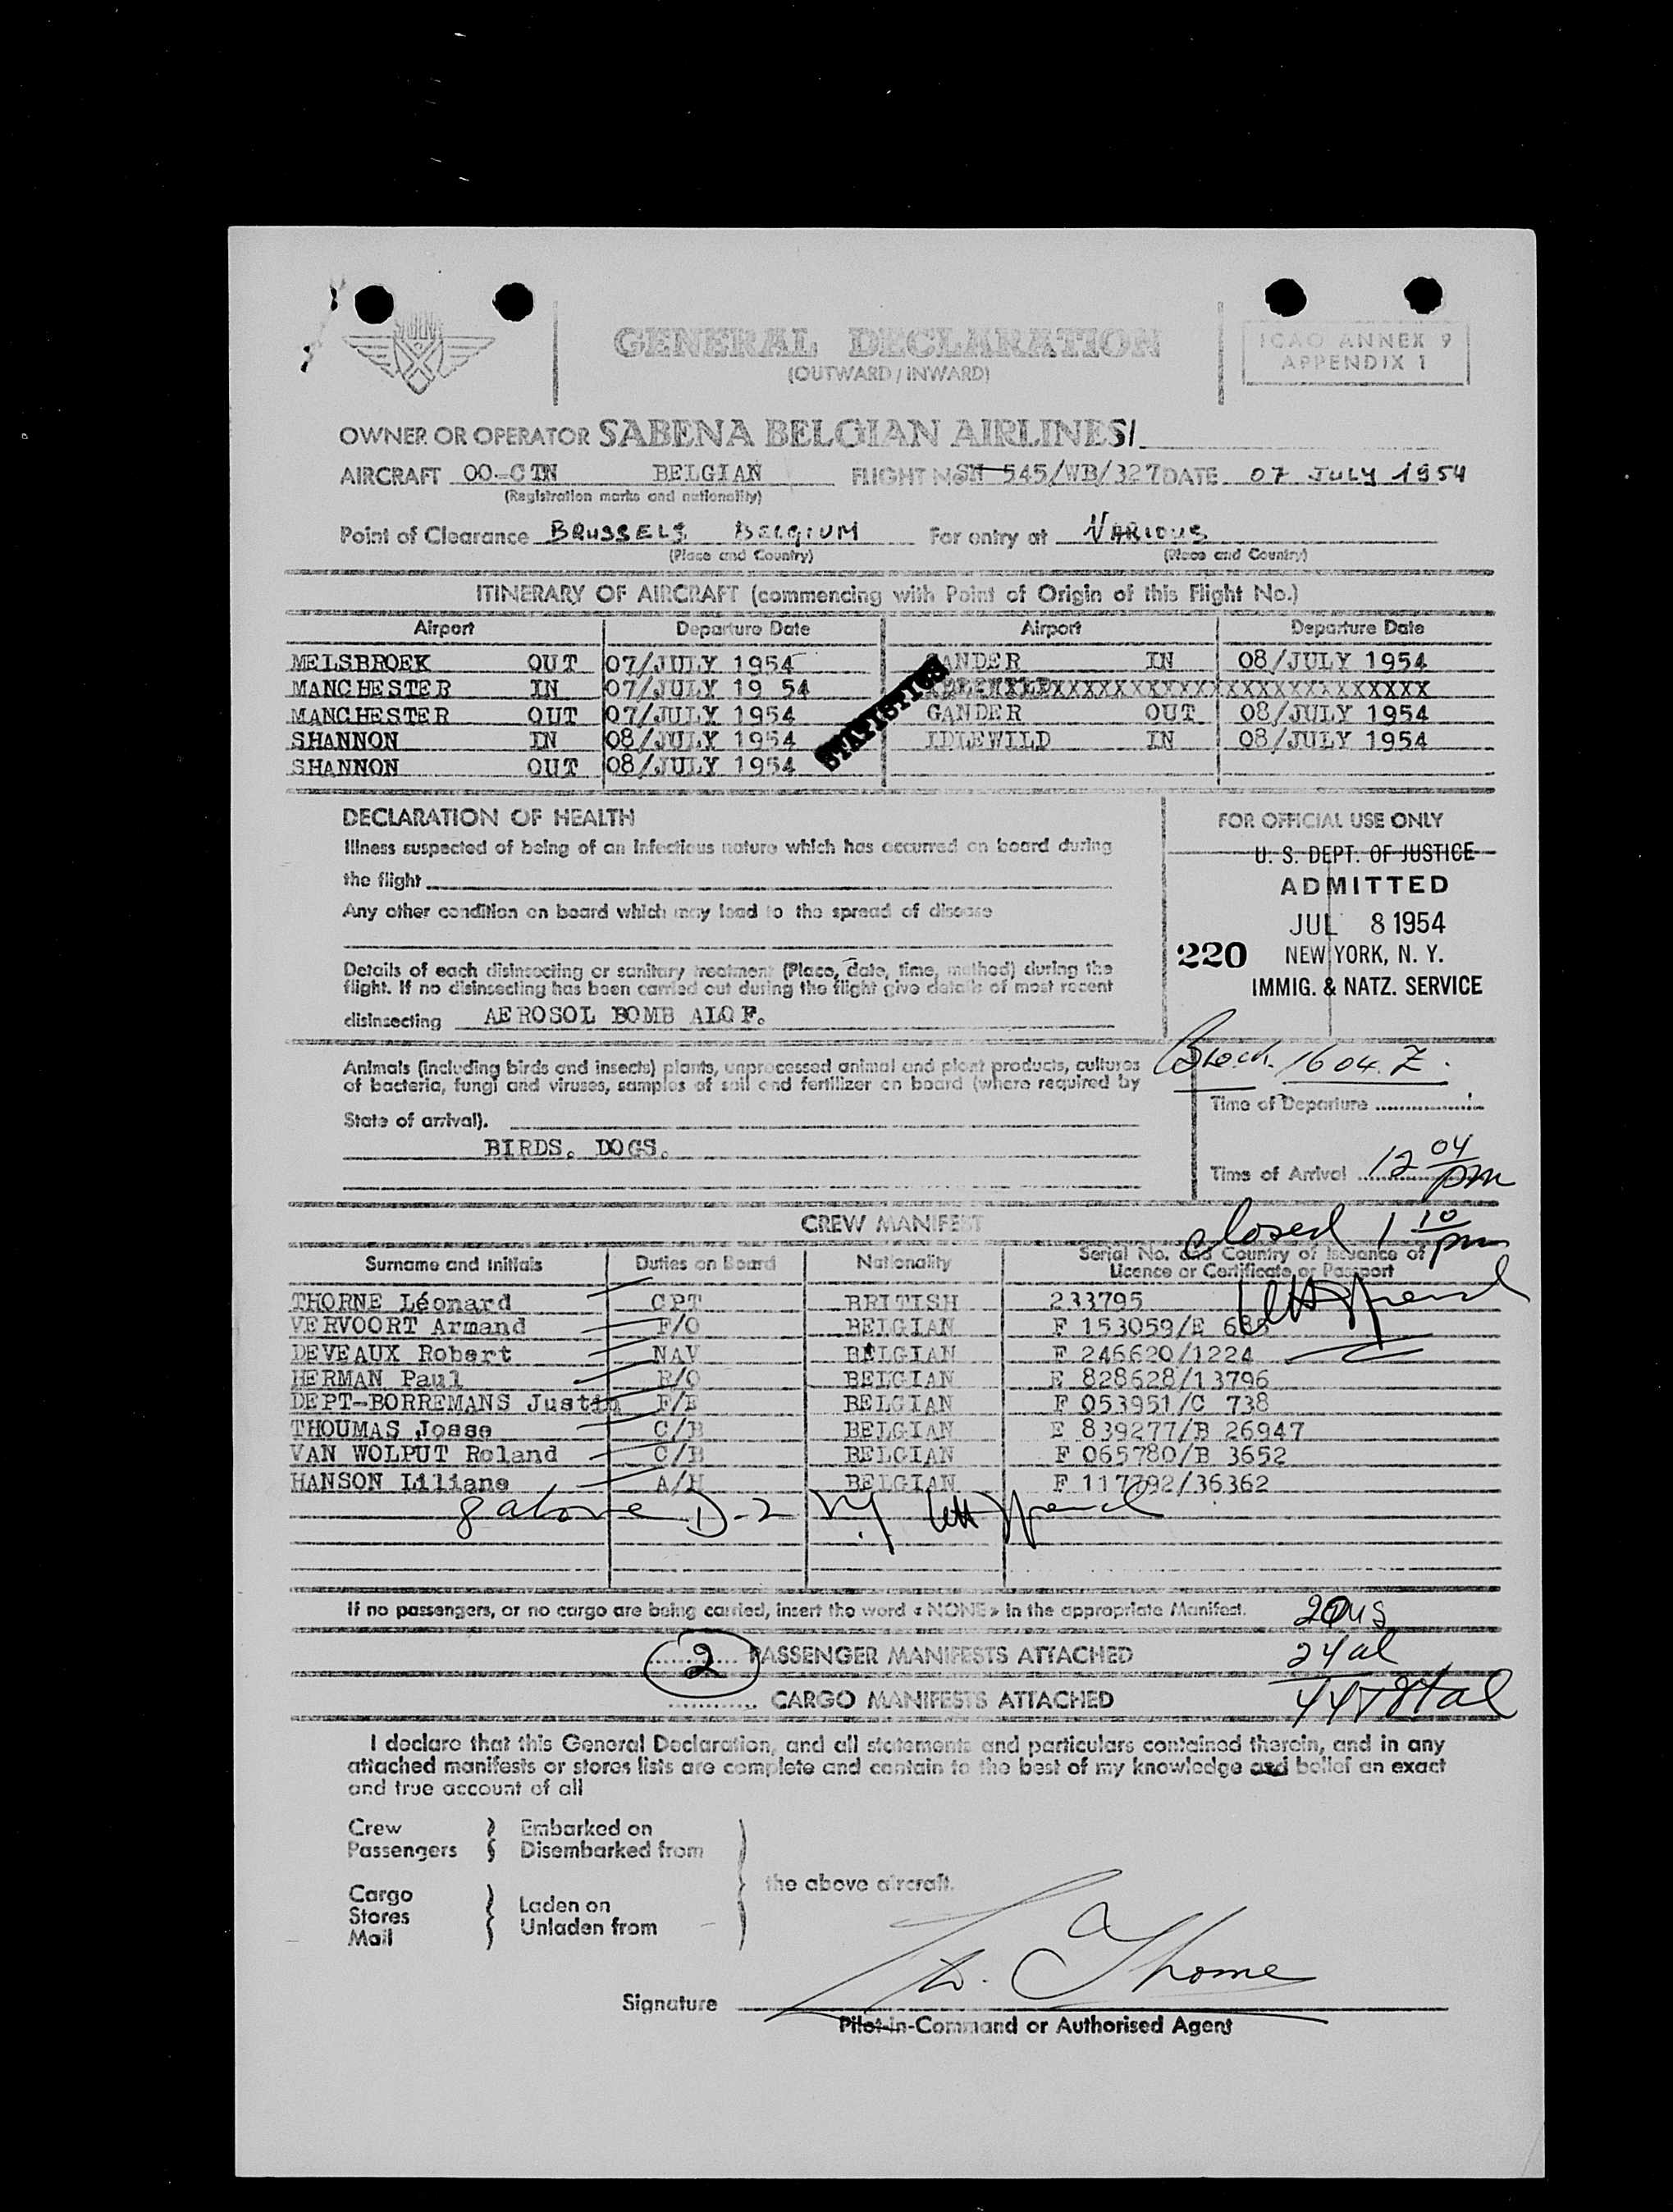 SABENA
GENERAL DECLARATION
(OUTWARD / INWARD)
ICAO ANNEX 9
APPENDIX 1
OWNER OR OPERATOR SABENA BELGIAN AIRLINES/
AIRCRAFT OO-CTN BELGIAN FLIGHT No SN 545/WB/327 DATE 07 JULY 1954
(Registration marks and nationality)
Point of Clearance BRUSSELS BELGIUM For entry at VARIOUS
(Place and Country) (Place and Country)
ITINERARY OF AIRCRAFT (commencing with Point of Origin of this Flight No.)
Airport Departure Date Airport Departure Date
MELSBROEK OUT 07/JULY 1954 GANDER IN 08/JULY 1954
MANCHESTER IN 07/JULY 19 54 XXXXXXXXXXXXXXXXXXXXXXXXX
MANCHESTER OUT 07/JULY 1954 GANDER OUT 08/JULY 1954
SHANNON IN 08/JULY 1954 IDLEWILD IN 08/JULY 1954
SHANNON OUT 08/JULY 1954
STATISTICS
DECLARATION OF HEALTH
Illness suspected of being of an infectious nature which has occurred on board during
the flight
Any other condition on board which may lead to the spread of disease
Details of each disinsecting or sanitary treatment (Place, date, time, method) during the
flight. If no disinsecting has been carried out during the flight give details of most recent
disinsecting AEROSOL BOMB ALOF.
FOR OFFICIAL USE ONLY
U. S. DEPT. OF JUSTICE
ADMITTED
JUL 8 1954
220 NEW YORK, N. Y.
IMMIG. & NATZ. SERVICE
Animals (including birds and insects) plants, unprocessed animal and plant products, cultures
of bacteria, fungi and viruses, samples of soil and fertilizer on board (where required by
State of arrival).
BIRDS. DOGS.
Block. 1604. Z.
Time of Departure
Time of Arrival 12 04 pm
closed 1 10 pm
CREW MANIFEST
Surname and Initials Duties on Board Nationality Serial No. and Country of Issuance of
Licence or Certificate or Passport
THORNE Léonard CPT BRITISH 233795
VERVOORT Armand F/O BELGIAN F 153059/E 685
DEVEAUX Robert NAV BELGIAN F 246620/1224
HERMAN Paul R/O BELGIAN E 828628/13796
DEPT-BORREMANS Justin F/E BELGIAN F 053951/C 738
THOUMAS Josse C/B BELGIAN E 839277/B 26947
VAN WOLPUT Roland C/B BELGIAN F 065780/B 3652
HANSON Liliane A/H BELGIAN F 117792/36362
8 above D-2 NY
If no passengers, or no cargo are being carried, insert the word « NONE » in the appropriate Manifest.
20 us
2 PASSENGER MANIFESTS ATTACHED
24 al
CARGO MANIFESTS ATTACHED
44 total
I declare that this General Declaration, and all statements and particulars contained therein, and in any
attached manifests or stores lists are complete and contain to the best of my knowledge and belief an exact
and true account of all
Crew Embarked on
Passengers Disembarked from
the above aircraft.
Cargo Laden on
Stores Unladen from
Mail
Signature L. Thorne
Pilot-in-Command or Authorised Agent